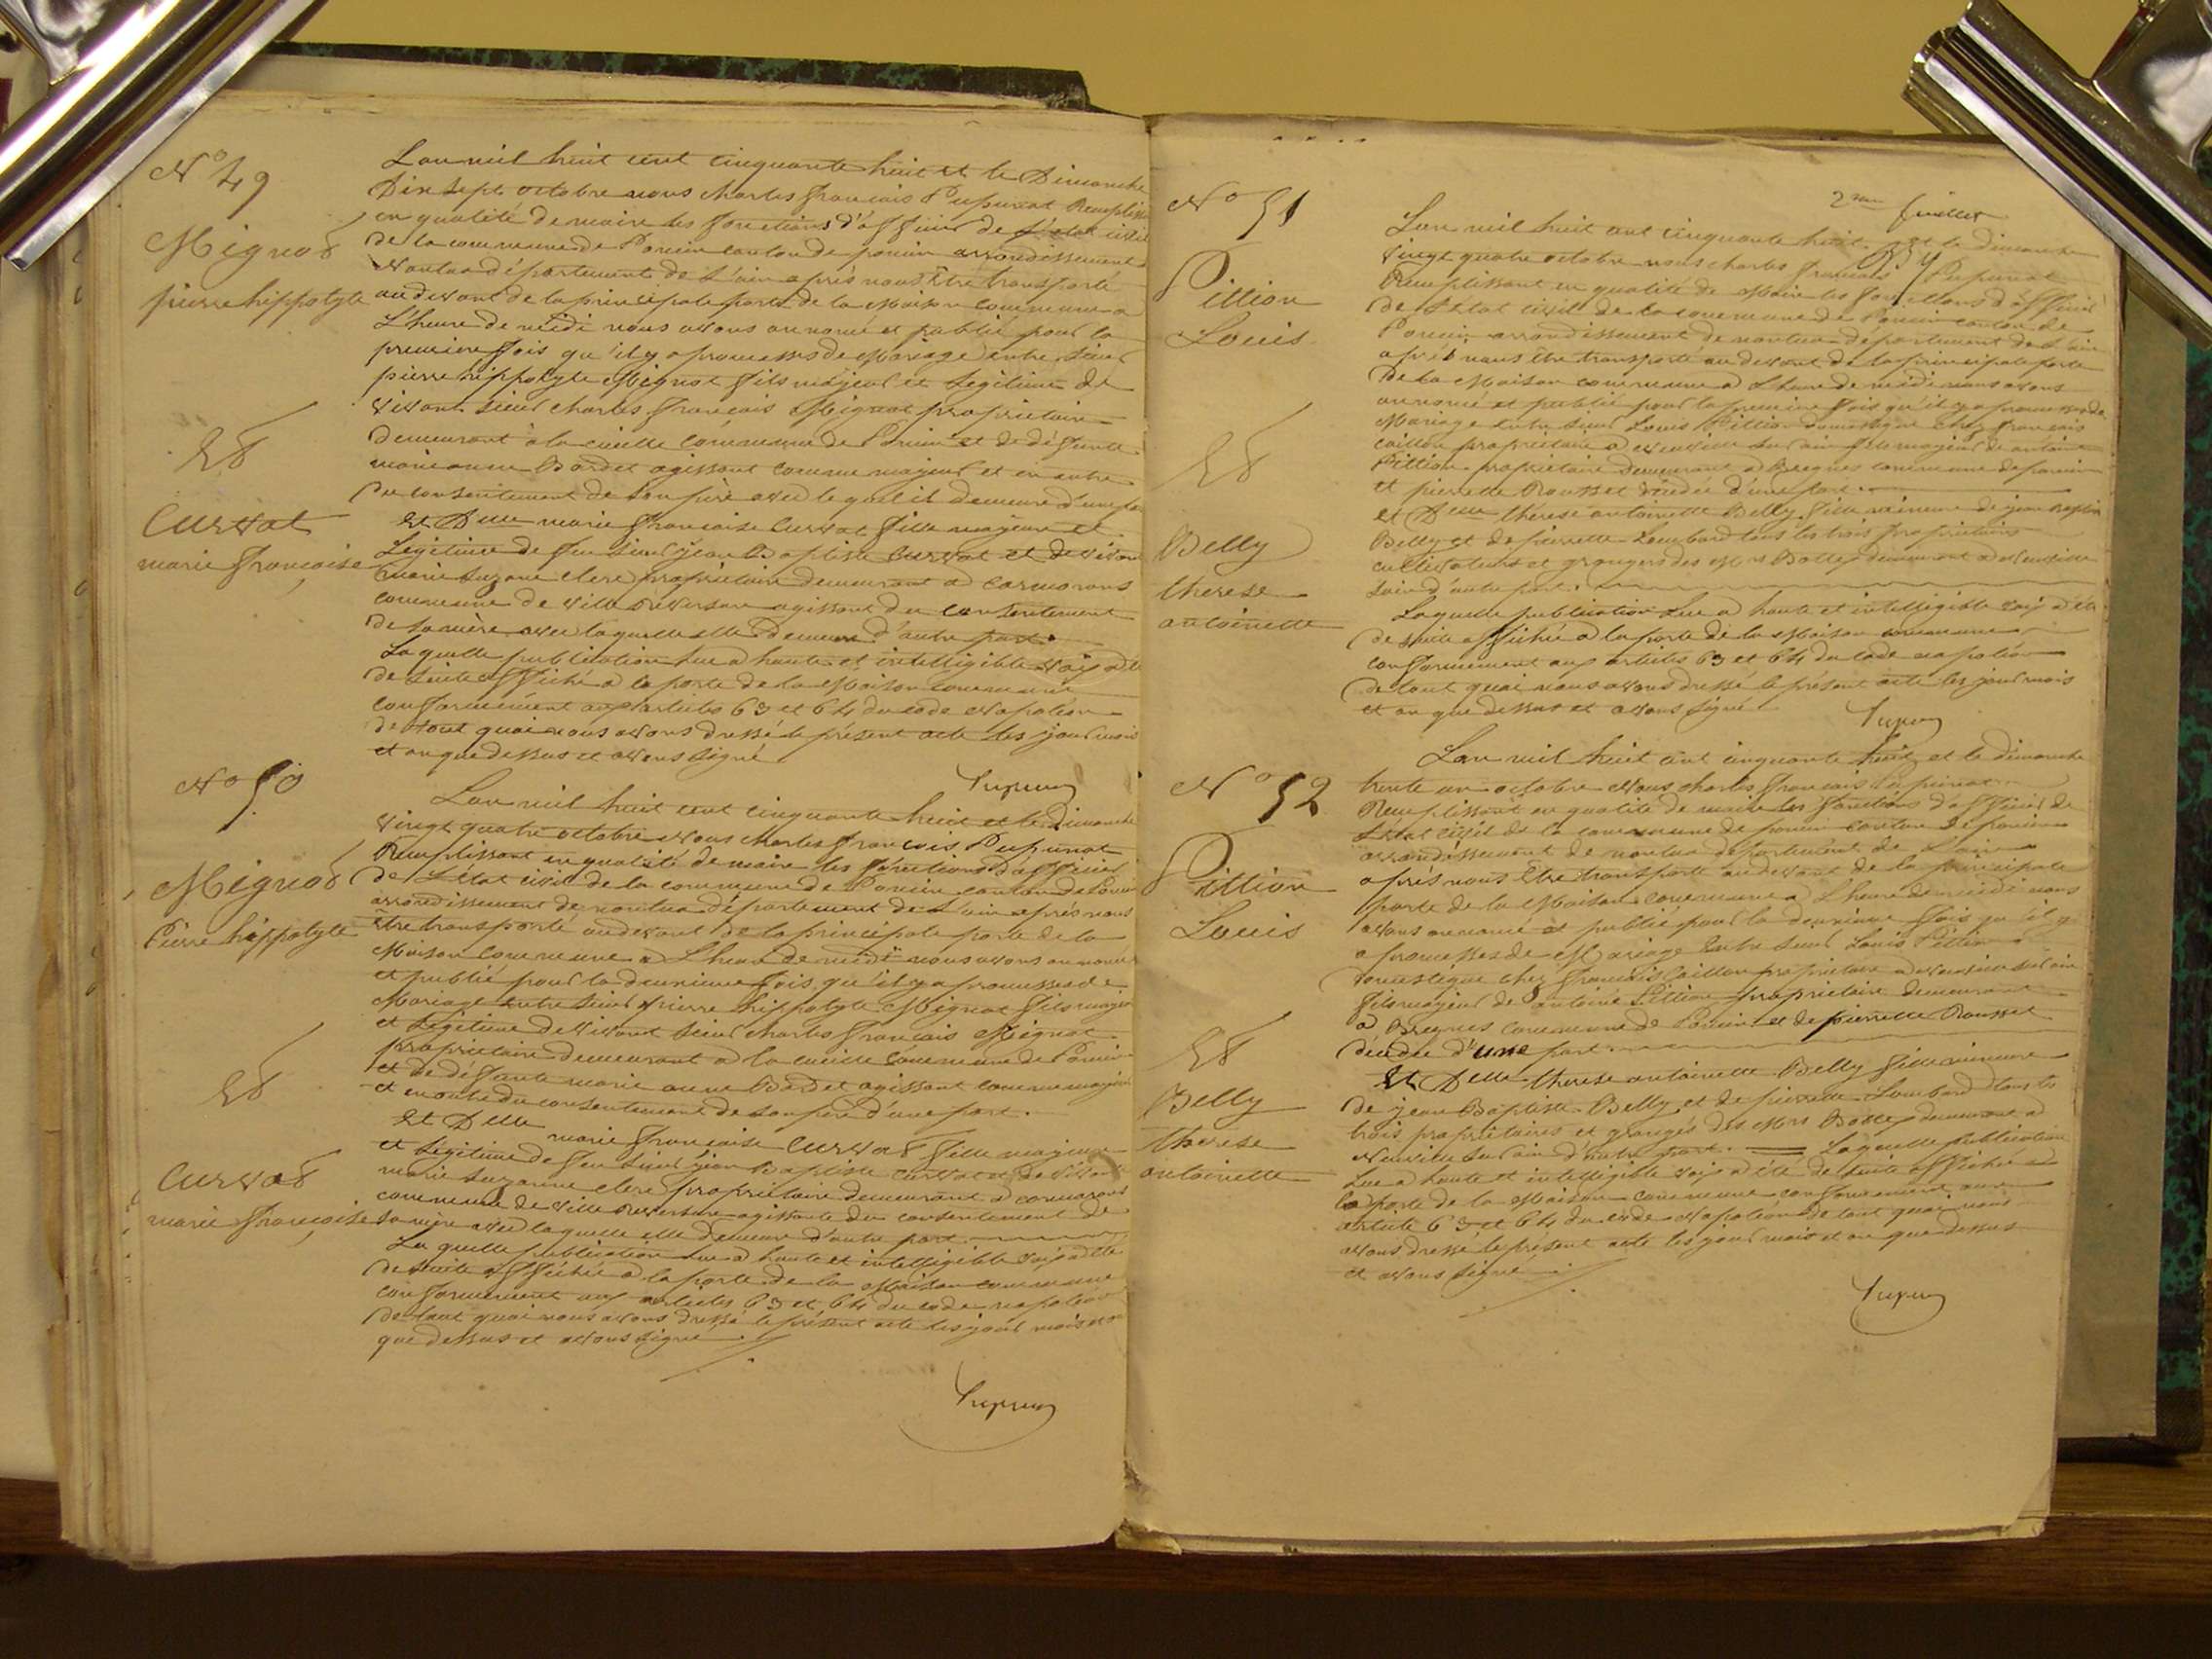 N° 49
Mignot
pierre hippolyte
Et
Curvat
marie françoise
L'an mil huit cent cinquante huit et le Dimanche
Dix sept octobre nous charles françois Pupunat Remplissant
en qualité de maire les fonctions d'officier de l'état civil
de la commune de Poncin canton de poncin arrondissement
Nantua département de l'ain après nous être transporté
au devant de la principale porte de la Maison commune a
L'heure de midi nous avons annoncé et publié pour la
premiere fois qu'il y a promesses de Mariage entre sieur
pierre hippolyte Mignot fils majeur et légitime de
vivant sieur charles françois Mignot propriétaire
demeurant à la cueille commune de Poncin et de défunte
marie anne Bardet agissant comme majeur et en outre
du consentement de son père avec lequel il demeure d'une part
Et Delle marie françoise Curvat fille majeure et
Légitime de feu sieur jean Baptiste Curvat et de vivante
marie suzane clerc propriétaire demeurant a cormorans
commune de ville reversure agissant du consentement
de sa mère avec laquelle elle demeure d'autre part
Laquelle publication lue a haute et intelligible voix a été
de suite affiché a la porte de la Maison commune
conformément aux articles 63 et 64 du code Napoléon
de tout quoi nous avons dressé le présent acte les jour mois
et an que dessus et avons signé
N° 50
Mignot
Pierre hippolyte
Et
Curvat
marie françoise
L'an mil huit cent cinquante huit et le Dimanche
vingt quatre octobre Nous charles françois Pupunat
Remplissant en qualité de maire les fonctions d'officier
de L'état civil de la commune de Poncin canton de Poncin
arrondissement de nantua département de L'ain après nous
être transporté au devant de la principale porte de la
Maison commune a L'heure de midi nous avons annoncé
et publié pour la deuxieme fois, qu'il y a promesses de
Mariage entre sieur pierre hippolyte Mignot fils majeur
et légitime de vivant sieur charles françois Mignot
propriétaire demeurant a la cueille commune de Poncin
et de défunte marie anne Badet agissant comme majeur
et en outre du consentement de son père d'une part.
Et Delle marie françoise Curvat fille majeure
et Légitime de feu sieur jean Baptiste Curvat et de vivante
marie suzanne clerc propriétaire demeurant a cormorans
commune de ville reversure agissante du consentement de
sa mère avec laquelle elle demeure d'autre part.
Laquelle publication lue a haute et intelligible voix a été
de suite affichée a la porte de la Maison commune
conformement aux articles 63 et 64 du code napoléon
de tout quoi nous avons dressé le présent acte les jour mois et an
que dessus et avons signé
2me feuillet
N° 51
Pittion
Louis
Et
Belly
therese
antoinette
L'an mil huit cent cinquante huit et le dimanche
vingt quatre octobre nous charles françois Pupunat
Remplissant en qualité de Maire les fonctions d'officier
de l'Etat civil de la commune de Poncin canton de
Poncin arrondissement de nantua département de L'ain
après nous être transporté au devant de la principale porte
de la Maison commune a L'heure de midi nous avons
annoncé et publié pour la premiere fois qu'il y a promesses de
Mariage entre sieur Louis Pittion domestique chez françois
caillon propriétaire a neuville sur ain fils majeur de antoine
Pittion propriétaire demeurant a Bregnes commune de poncin
et pierrette Rousset décédée d'une part.
et Delle therese antoinette Belly fille mineure de jean Baptiste
Belly et de pierrette Lombard tous les trois propriétaires
cultivateurs et grangers des Mrs Bottex demeurant a Neuville
sur ain d'autre part.
Laquelle publication lue a haute et intelligible voix a été
de suite affichée a la porte de la Maison commune
conformement aux articles 63 et 64 du code napoléon
de tout quoi nous avons dressé le présent acte les jour mois
et an que dessus et avons signé
N° 52
Pittion
Louis
Et
Belly
therese
antoinette
L'an mil huit cent cinquante huit et le dimanche
trente un octobre Nous charles françois Pupunat
Remplissant en qualité de maire les fonctions d'officier de
L'état civil de la commune de poncin canton de poncin
arrondissement de nantua département de L'ain
après nous être transporté au devant de la principale
porte de la Maison commune a L'heure de midi nous
avons annoncé et publié pour la deuxieme fois qu'il y
a promesses de Mariage Entre sieur Louis Pittion
domestique chez françois Caillon propriétaire a neuville sur ain
fils majeur de antoine Pittion propriétaire demeurant
a Bregnes commune de Poncin et de pierrette Rousset
décédée d'une part.
Et Delle therese antoinette Belly fille mineure
de jean Baptiste Belly et de pierrette Lombard tous les
trois propriétaires et grangés des Mrs Bottex demeurant a
Neuville sur ain d'autre part. Laquelle publication
Lue a haute et intelligible voix a été de suite affichée a
la porte de la Maison commune conformement aux
article 63 et 64 du code Napoléon de tout quoi nous
avons dressé le présent acte les jour mois et an que dessus
et avons signé